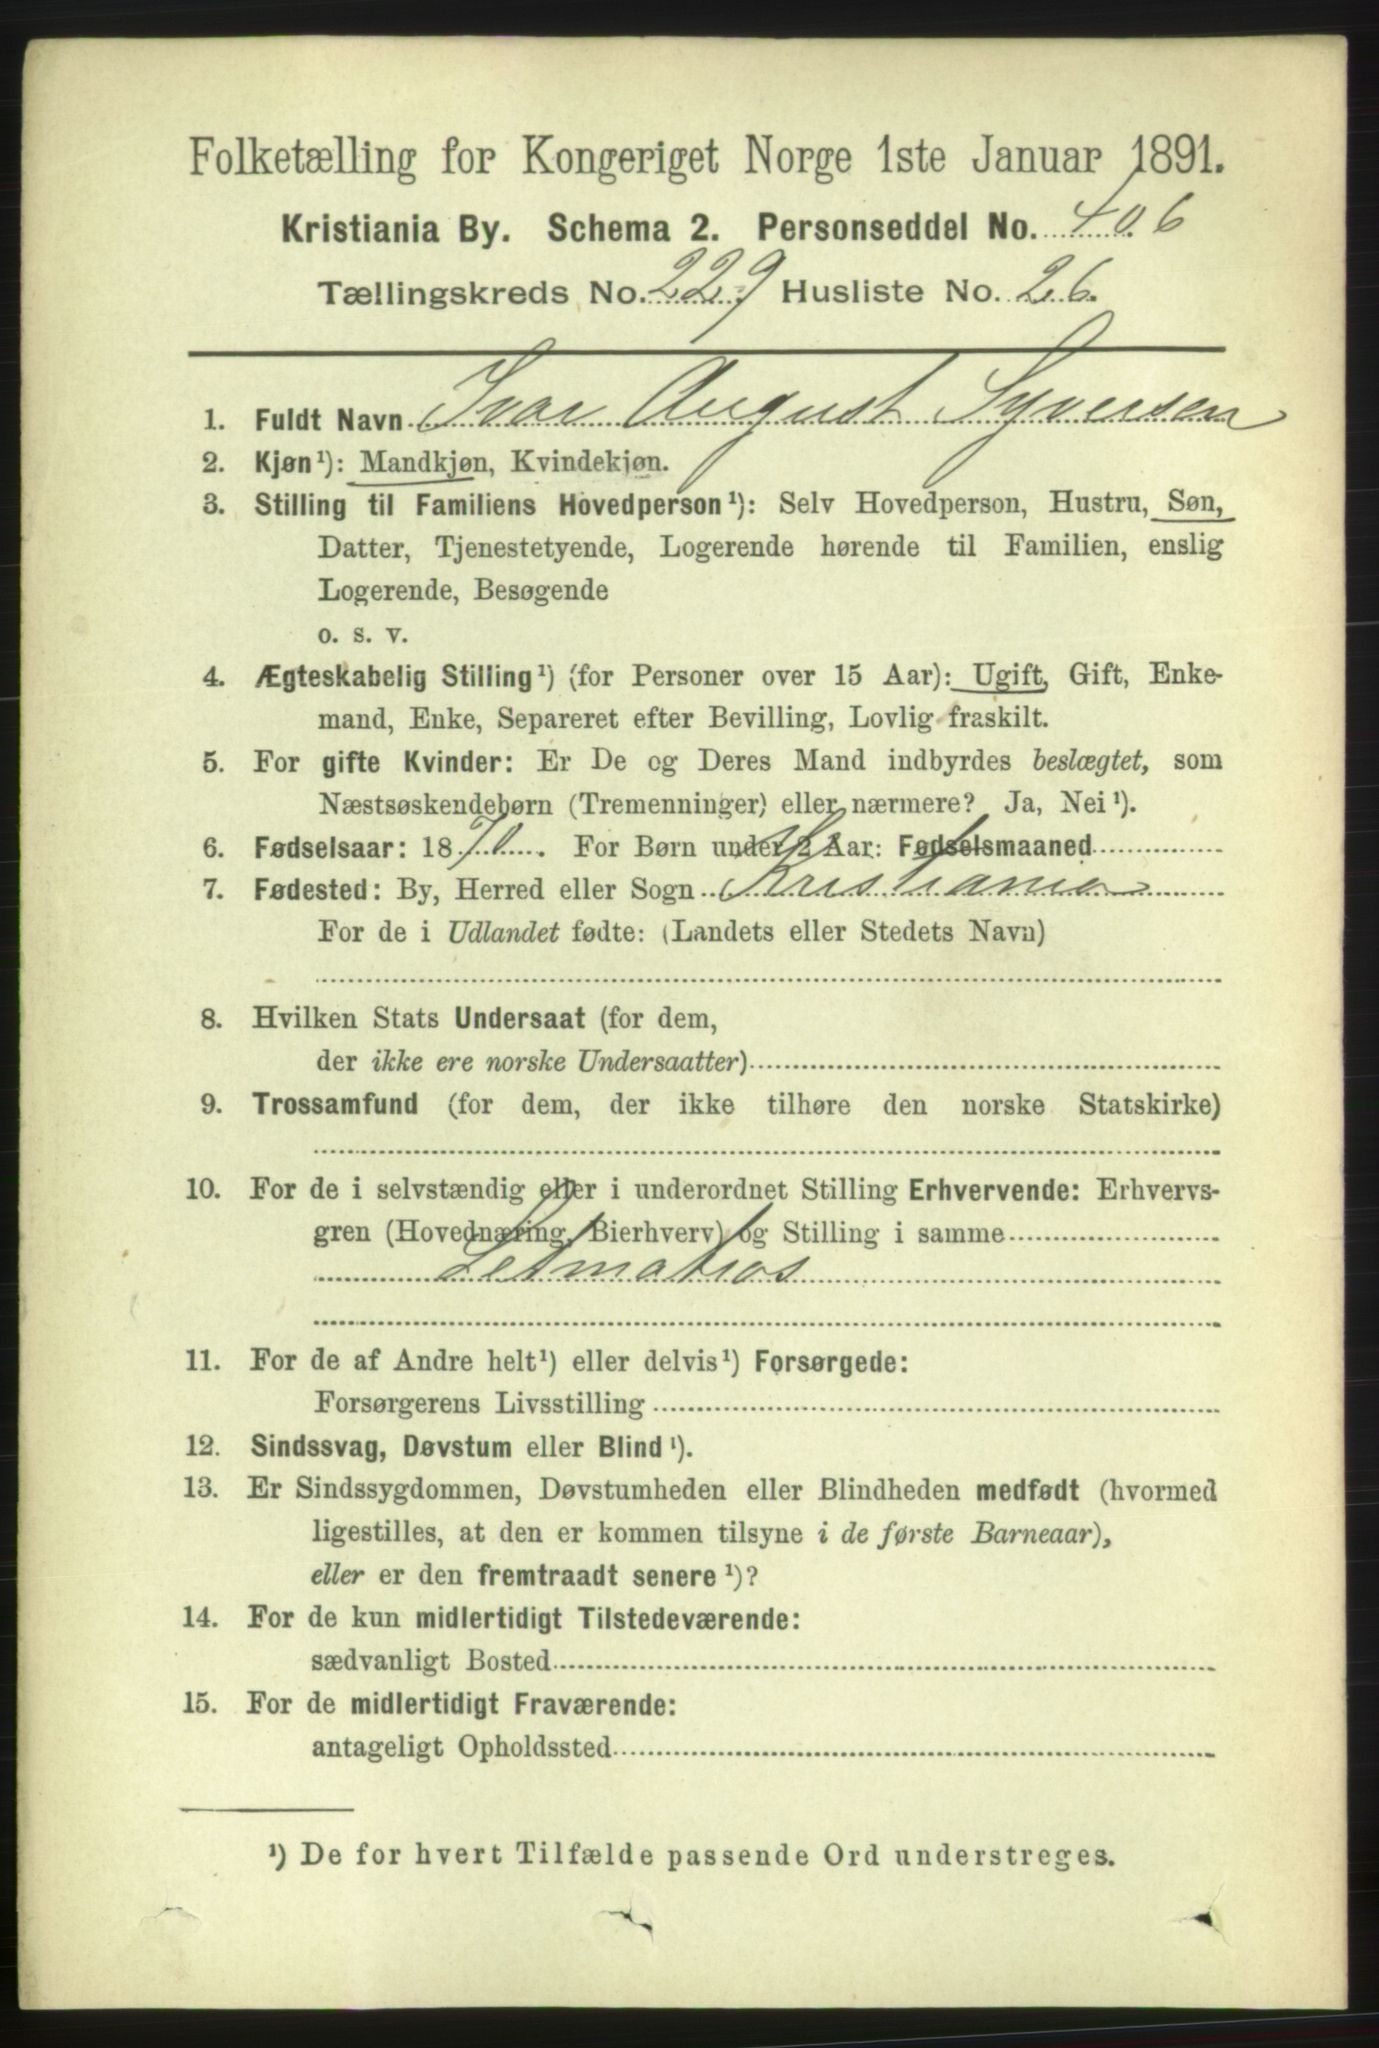 Folketælling for Kongeriget Norge 1ste Januar 1891.
Kristiania By. Schema 2. Personseddel No. 406
Tællingskreds No. 229 Husliste No. 26.
1. Fuldt Navn Ivar August Syversen
2. Kjøn¹): Mandkjøn, Kvindekjøn.
3. Stilling til Familiens Hovedperson¹): Selv Hovedperson, Hustru, Søn,
Datter, Tjenestetyende, Logerende hørende til Familien, enslig
Logerende, Besøgende
o. s. v.
4. Ægteskabelig Stilling¹) (for Personer over 15 Aar): Ugift, Gift, Enke-
mand, Enke, Separeret efter Bevilling, Lovlig fraskilt.
5. For gifte Kvinder: Er De og Deres Mand indbyrdes beslægtet, som
Næstsøskendebørn (Tremenninger) eller nærmere? Ja, Nei¹).
6. Fødselsaar: 1870. For Børn under 2 Aar: Fødselsmaaned
7. Fødested: By, Herred eller Sogn Kristiania
For de i Udlandet fødte: (Landets eller Stedets Navn)
8. Hvilken Stats Undersaat (for dem,
der ikke ere norske Undersaatter)
9. Trossamfund (for dem, der ikke tilhøre den norske Statskirke)
10. For de i selvstændig eller i underordnet Stilling Erhvervende: Erhvervs-
gren (Hovednæring, Bierhverv) og Stilling i samme
Letmatros
11. For de af Andre helt¹) eller delvis¹) Forsørgede:
Forsørgerens Livsstilling
12. Sindssvag, Døvstum eller Blind¹).
13. Er Sindssygdommen, Døvstumheden eller Blindheden medfødt (hvormed
ligestilles, at den er kommen tilsyne i de første Barneaar),
eller er den fremtraadt senere¹)?
14. For de kun midlertidigt Tilstedeværende:
sædvanligt Bosted
15. For de midlertidigt Fraværende:
antageligt Opholdssted
¹) De for hvert Tilfælde passende Ord understreges.